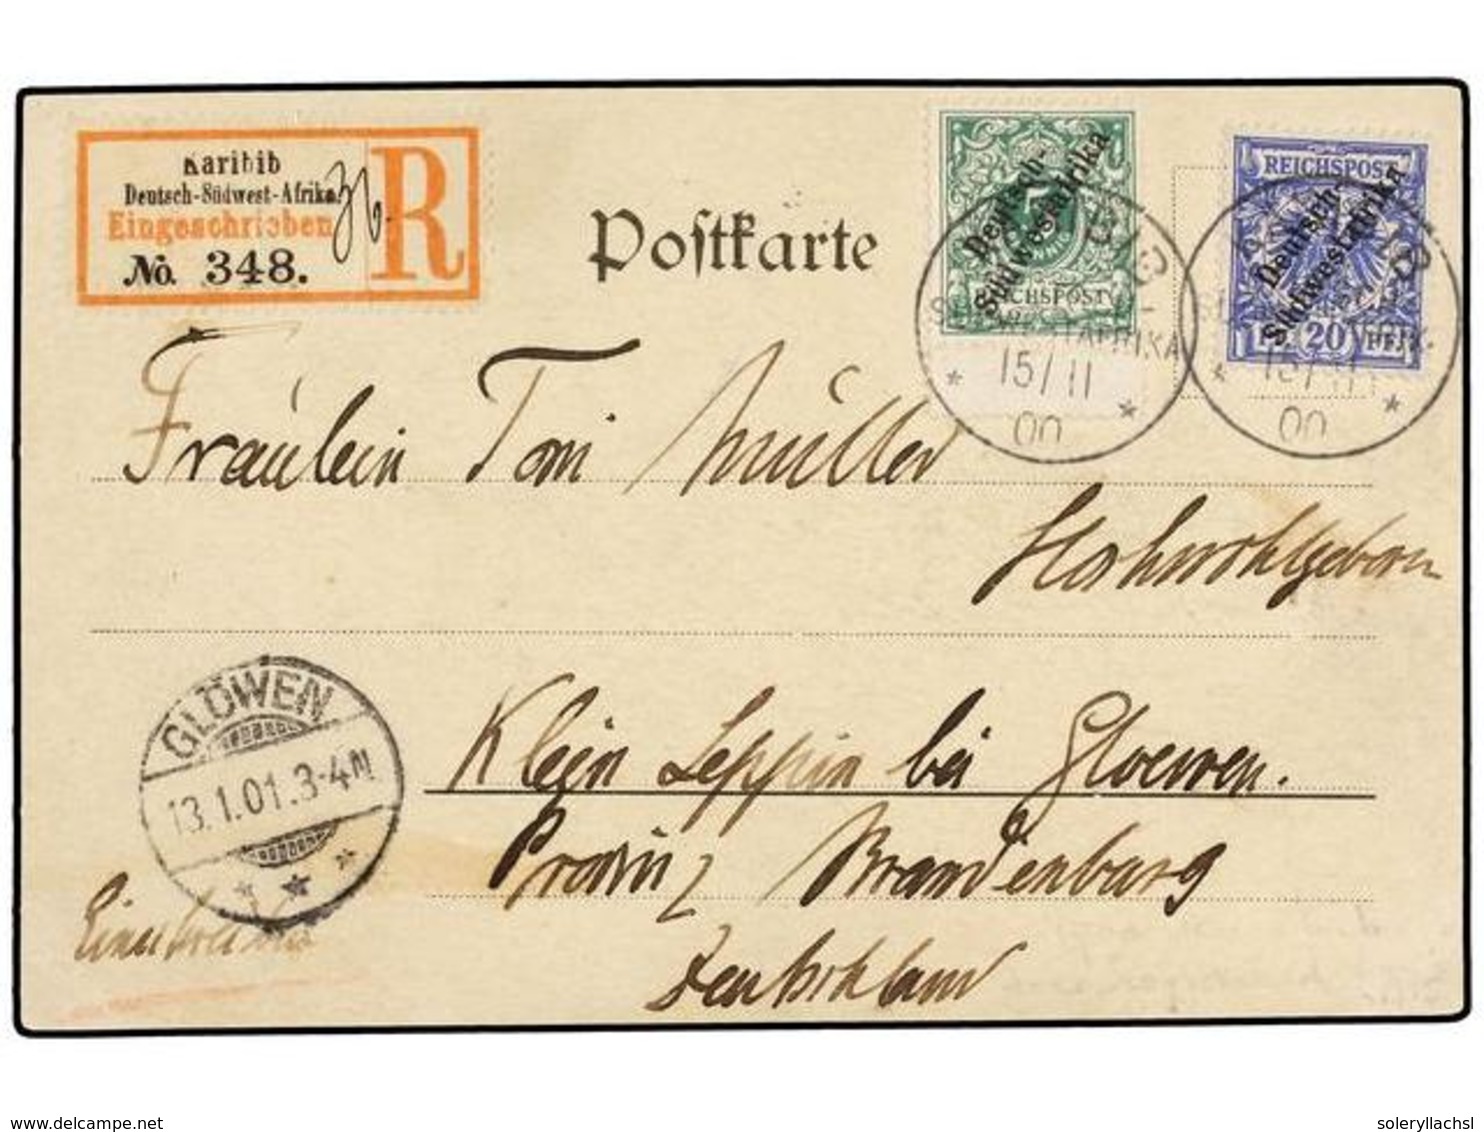 Karibib
Deutsch-Südwest-Afrika
Eingeschrieben
No. 348.
R
Postkarte
5
REICHSPOST
Deutsch-
Südwestafrika
REICHSPOST
20
Deutsch-
Südwestafrika
15/11
00
15/11
00
Fräulein Toni Müller
Hochwohlgeboren
GLÖWEN
13.1.01.3-4N
Klein Leppin bei Gloewen.
Provinz Brandenburg
Deutschland
Einschreiben
delcampe.net
soleryllachsl